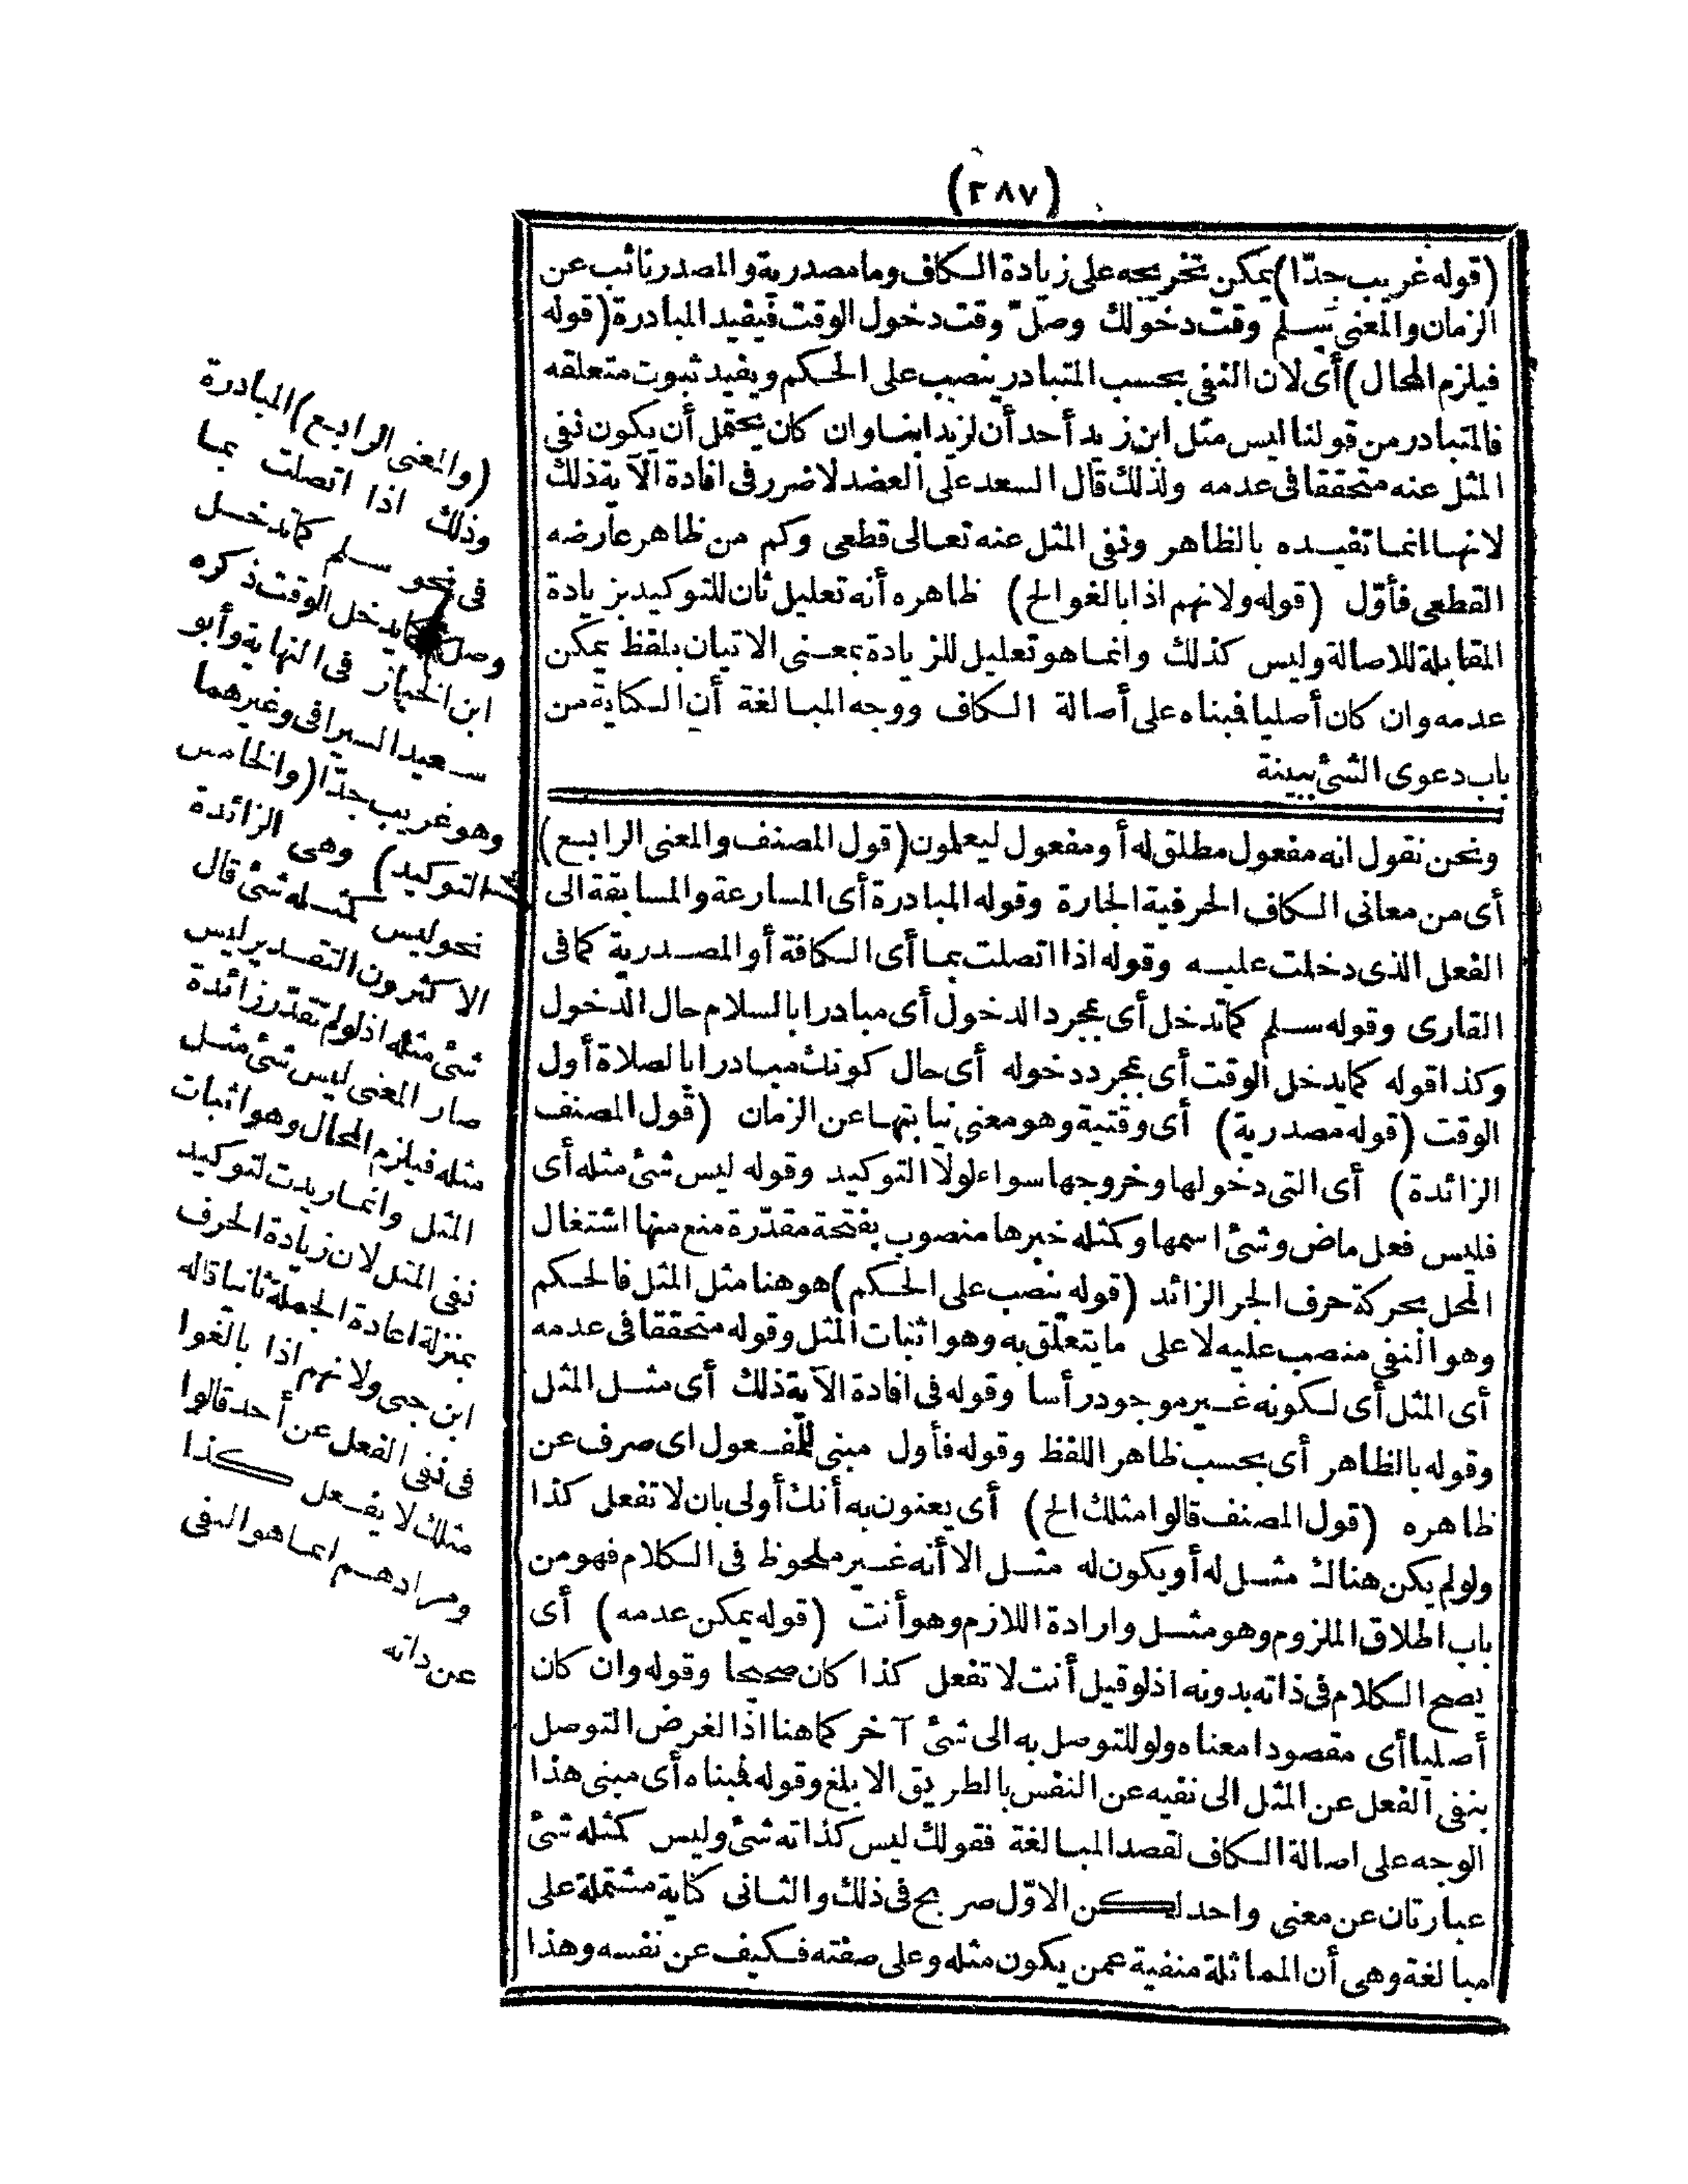 (٢٨٧)
(قوله غريب جدّا) يمكن تخريجه على زيادة الكاف وما مصدرية والمصدر نائب عن
الزمان والمعنى سلم وقت دخولك وصلّ وقت دخول الوقت فيفيد المبادرة (قوله
فيلزم المحال) أى لان النفى بحسب المتبادر ينصب على الحكم ويفيد ثبوت متعلقه
فالمتبادر من قولنا ليس مثل ابن زيد أحد أن لزيد ابنا وان كان يحتمل أن يكون نفى
المثل عنه متحققا فى عدمه ولذلك قال السعد على العضد لا ضرر فى افادة الآية ذلك
لانها انما تفيده بالظاهر ونفى المثل عنه تعالى قطعى وكم من ظاهر عارضه
القطعى فأوّل (قوله ولانهم اذا بالغوا الخ) ظاهره أنه تعليل ثان للتوكيد بزيادة
المقابلة للاصالة وليس كذلك وانما هو تعليل للزيادة بمعنى الاتيان بلفظ يمكن
عدمه وان كان أصليا فبناه على أصالة الكاف ووجه المبالغة أن الكناية من
باب دعوى الشئ ببينة
ونحن نقول انه مفعول مطلق له أو مفعول ليعلمون (قول المصنف والمعنى الرابع)
أى من معانى الكاف الحرفية الجارة وقوله المبادرة أى المسارعة والمسابقة الى
الفعل الذى دخلت عليه وقوله اذا اتصلت بما أى الكافة أو المصدرية كما فى
القارى وقوله سلم كما تدخل أى بمجرد الدخول أى مبادرا بالسلام حال الدخول
وكذا قوله كما يدخل الوقت أى بمجرد دخوله أى حال كونك مبادرا بالصلاة أول
الوقت (قوله مصدرية) أى وقتية وهو معنى نيابتها عن الزمان (قول المصنف
الزائدة) أى التى دخولها وخروجها سواء لولا التوكيد وقوله ليس شئ مثله أى
فليس فعل ماض وشئ اسمها وكمثله خبرها منصوب بفتحة مقدّرة منع منها اشتغال
المحل بحركة حرف الجر الزائد (قوله ينصب على الحكم) هو هنا مثل المثل فالحكم
وهو النفى منصب عليه لا على ما يتعلق به وهو اثبات المثل وقوله متحققا فى عدمه
أى المثل أى لكونه غير موجود رأسا وقوله فى افادة الآية ذلك أى مثل المثل
وقوله بالظاهر أى بحسب ظاهر اللفظ وقوله فأول مبنى للمفعول اى صرف عن
ظاهره (قول المصنف قالوا مثلك الخ) أى يعنون به أنك أولى بان لا تفعل كذا
ولو لم يكن هناك مثل له أو يكون له مثل الا أنه غير ملحوظ فى الكلام فهو من
باب اطلاق الملزوم وهو مثل وارادة اللازم وهو أنت (قوله يمكن عدمه) أى
يصح الكلام فى ذاته بدونه اذ لو قيل أنت لا تفعل كذا كان صحيحا وقوله وان كان
أصليا أى مقصودا معناه ولو للتوصل به الى شئ آخر كما هنا اذ الغرض التوصل
بنفى الفعل عن المثل الى نفيه عن النفس بالطريق الابلغ وقوله فبناه أى مبنى هذا
الوجه على اصالة الكاف لقصد المبالغة فقولك ليس كذاته شئ وليس كمثله شئ
عبارتان عن معنى واحد لكن الاوّل صريح فى ذلك والثانى كناية مشتملة على
مبالغة وهى أن المماثلة منفية عمن يكون مثله وعلى صفته فكيف عن نفسه وهذا
(والمعنى الرابع) المبادرة
وذلك اذا اتصلت بما
فى نحو سلم كما تدخل
وصل كما يدخل الوقت ذكره
ابن الخباز فى النهاية وأبو
سعيد السيرافى وغيرهما
وهو غريب جدّا (والخامس
التوكيد) وهى الزائدة
نحو ليس كمثله شئ قال
الاكثرون التقدير ليس
شئ مثله اذ لو لم تقدّر زائدة
صار المعنى ليس شئ مثل
مثله فيلزم المحال وهو اثبات
المثل وانما زيدت لتوكيد
نفى المثل لان زيادة الحرف
بمنزلة اعادة الجملة ثانيا قاله
ابن جنى ولانهم اذا بالغوا
فى نفى الفعل عن أحد قالوا
مثلك لا يفعل كذا
ومرادهم انما هو النفى
عن ذاته